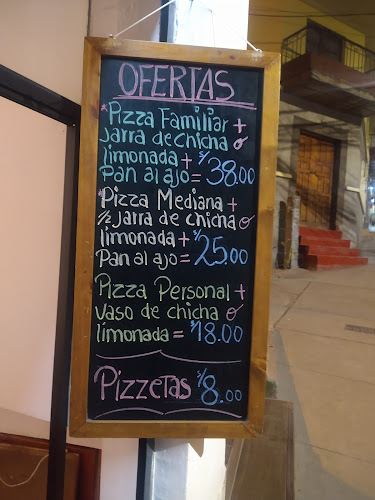 OFERTAS
*Pizza Familiar +
Jarra de chicha o
limonada + S/38.00
Pan al ajo =
*Pizza Mediana +
1/2 jarra de chicha o
limonada + S/25.00
Pan al ajo =
Pizza Personal +
vaso de chicha o
limonada = S/18.00
Pizzetas S/8.00